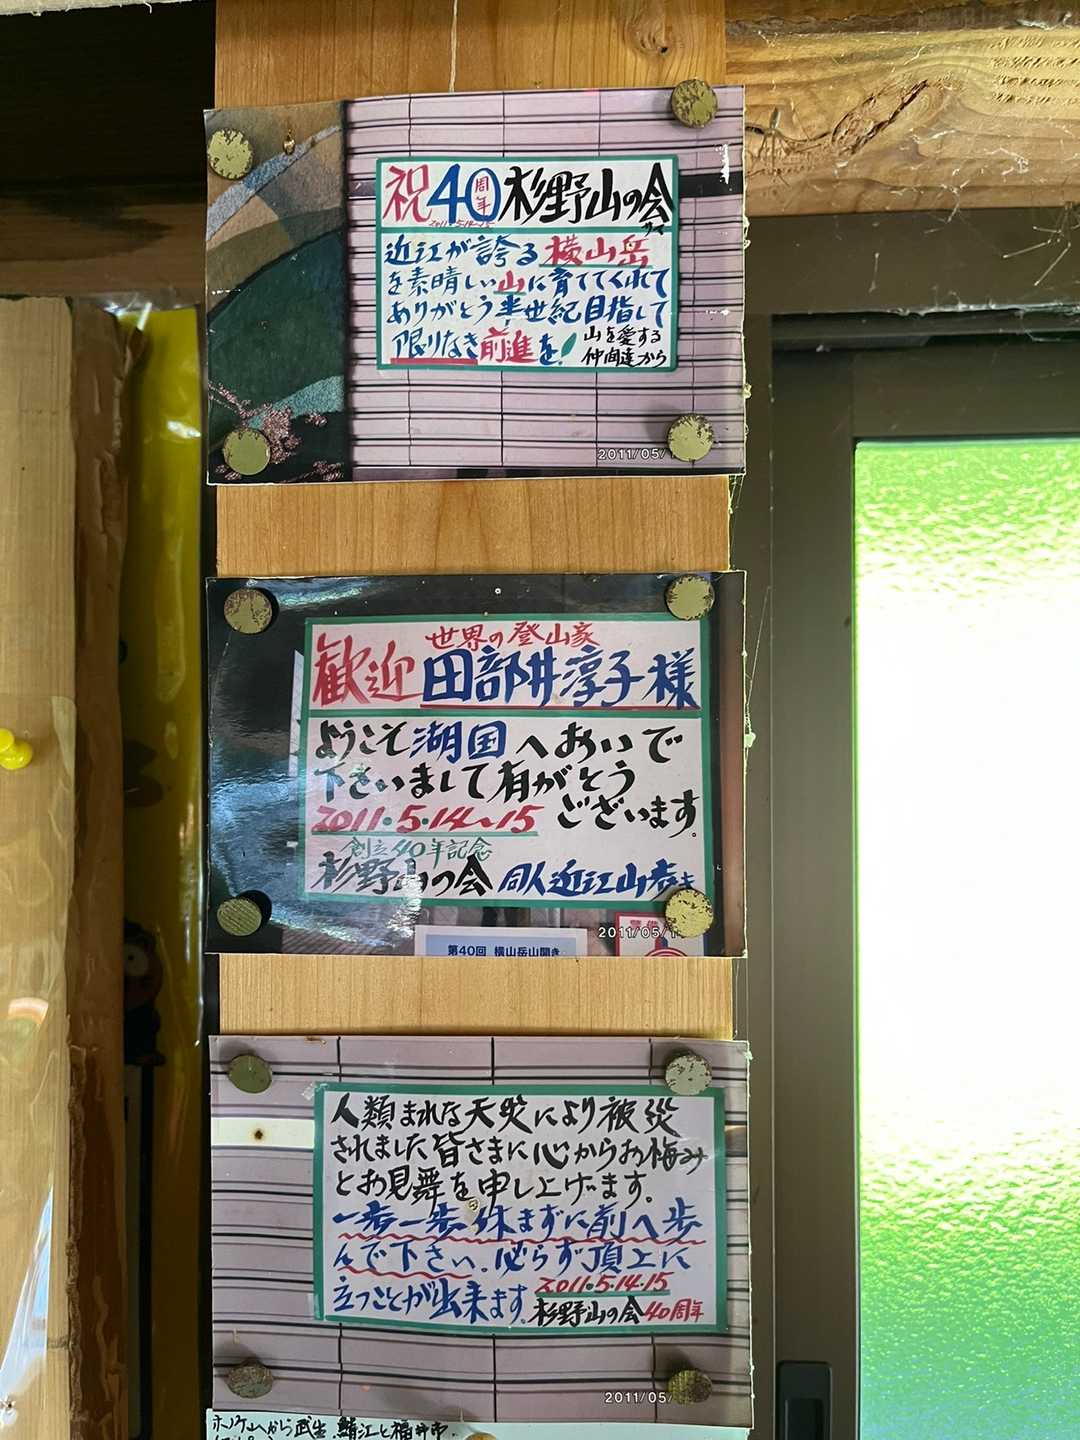 祝40周年杉野山の会
2011・5・14~15
近江が誇る横山岳
を素晴しい山に育ててくれて
ありがとう半世紀目指して
限りなき前進を!
山を愛する
仲間達から
2011/05/
世界の登山家
歓迎田部井淳子様
ようこそ湖国へおいで
下さいまして有がとう
2011・5・14~15 ございます。
創立40年記念
杉野山の会 同人近江山歩き
2011/05/1
第40回 横山岳山開き
人類まれな天災により被災
されました皆さまに心からお悔み
とお見舞を申し上げます。
一歩一歩休まずに前へ歩
んで下さい。必らず頂上に
立つことが出来ます。
2011・5・14・15
杉野山の会40周年
2011/05/
から武生、鯖江と福井市、